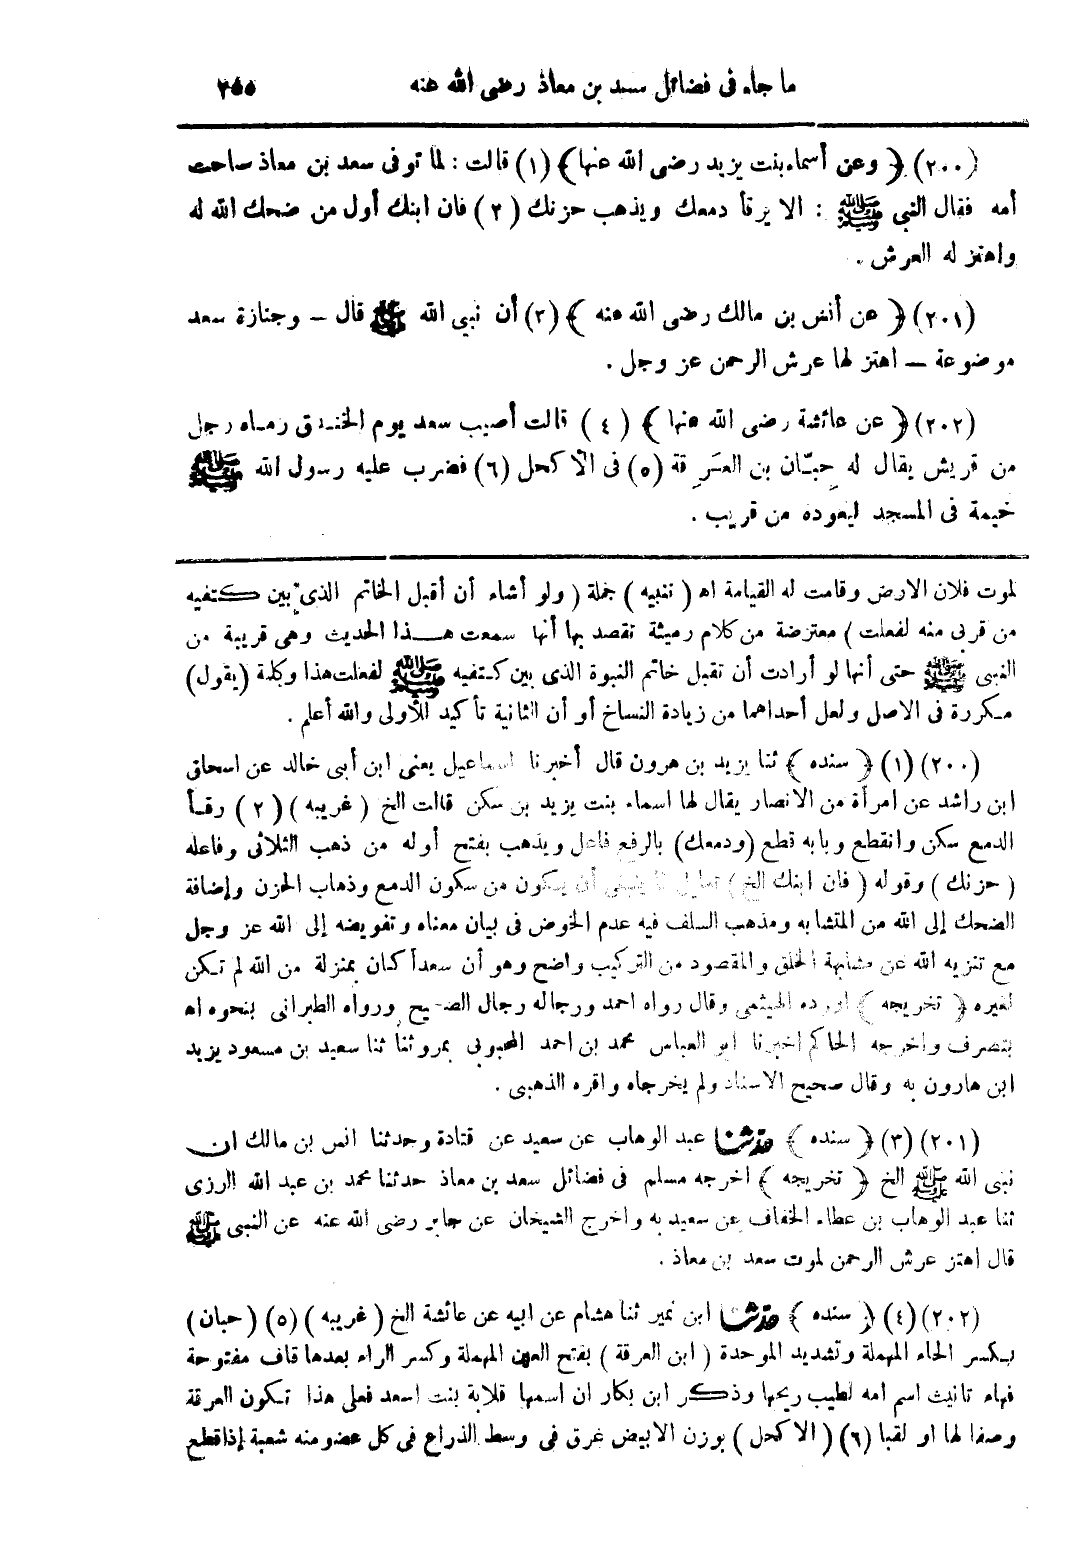 ما جاء فى فضائل سعد بن معاذ رضى الله عنه ٢٥٥
(٢٠٠) ﴿ وعن أسماء بنت يزيد رضى الله عنها ﴾ (١) قالت : لما توفى سعد بن معاذ ساحت
أمه فقال النبى ﷺ : الا يرقأ دمعك ويذهب حزنك (٢) فان ابنك أول من ضحك الله له
واهتز له العرش .
(٢٠١) ﴿ عن أنس بن مالك رضى الله عنه ﴾ (٣) أن نبي الله ﷺ قال – وجنازة سعد
موضوعة – اهتز لها عرش الرحمن عز وجل .
(٢٠٢) ﴿ عن عائشة رضى الله عنها ﴾ (٤) قالت أصيب سعد يوم الخندق رماه رجل
من قريش يقال له حِبّان بن العَرِقة (٥) فى الأكحل (٦) فضرب عليه رسول الله ﷺ
خيمة فى المسجد ليعوده من قريب .
لموت فلان الارض وقامت له القيامة اه (تنبيه) جملة (ولو أشاء أن أقبل الخاتم الذى بين كتفيه
من قربى منه لفعلت) معترضة من كلام رميثة تقصد بها أنها سمعت هذا الحديث وهى قريبة من
النبى ﷺ حتى أنها لو أرادت أن تقبل خاتم النبوة الذى بين كتفيه ﷺ لفعلت هذا وكلمة (يقول)
مكررة فى الاصل ولعل أحداهما من زيادة النساخ أو أن الثانية تأكيد للأولى والله أعلم .
(٢٠٠) (١) ﴿ سنده ﴾ ثنا يزيد بن هرون قال أخبرنا اسماعيل يعنى ابن أبى خالد عن اسحاق
ابن راشد عن امرأة من الانصار يقال لها اسماء بنت يزيد بن سكن قالت الخ (غريبه) (٢) رقأ
الدمع سكن وانقطع وبابه قطع (ودمعك) بالرفع فاعل ويذهب بفتح أوله من ذهب الثلاثى وفاعله
(حزنك) وقوله (فان ابنك الخ) تعليل لما ينبغى أن يكون من سكون الدمع وذهاب الحزن وإضافة
الضحك إلى الله من المتشابه ومذهب السلف فيه عدم الخوض فى بيان معناه وتفويضه إلى الله عز وجل
مع تنزيه الله عن مشابهة الخلق والمقصود من التركيب واضح وهو أن سعدأ كان بمنزلة من الله لم تكن
لغيره ﴿ تخريجه ﴾ اورده الهيثمى وقال رواه احمد ورجاله رجال الصحيح ورواه الطبرانى بنحوه اه
بتصرف واخرجه الحاكم اخبرنا ابو العباس محمد بن احمد المحبوبى بمرو ثنا ثنا سعيد بن مسعود يزيد
ابن هارون به وقال صحيح الاسناد ولم يخرجاه واقره الذهبى .
(٢٠١) (٣) ﴿ سنده ﴾ حدثنا عبد الوهاب عن سعيد عن قتادة وحدثنا انس بن مالك ان
نبى الله ﷺ الخ ﴿ تخريجه ﴾ اخرجه مسلم فى فضائل سعد بن معاذ حدثنا محمد بن عبد الله الرزى
ثنا عبد الوهاب بن عطاء الخفاف عن سعيد به واخرج الشيخان عن جابر رضى الله عنه عن النبى ﷺ
قال اهتز عرش الرحمن لموت سعد بن معاذ .
(٢٠٢) (٤) ﴿ سنده ﴾ حدثنا ابن نمير ثنا هشام عن ابيه عن عائشة الخ (غريبه) (٥) (حبان)
بكسر الحاء المهملة وتشديد الموحدة (ابن العرقة) بفتح العين المهملة وكسر الراء بعدها قاف مفتوحة
فهاء تانيث اسم امه لطيب ريحها وذكر ابن بكار ان اسمها قلابة بنت اسعد فعلى هذا تكون العرقة
وصفا لها او لقبا (٦) (الاكحل) بوزن الابيض عرق فى وسط الذراع فى كل عضو منه شعبة إذا قطع